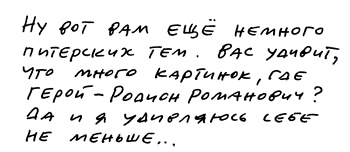 Ну вот вам ещё немного
питерских тем. Вас удивит,
что много картинок, где
герой – Родион Романович?
Да и я удивляюсь себе
не меньше...